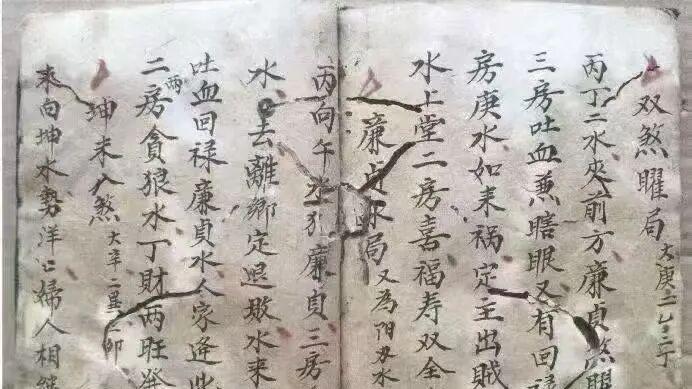 双煞曜局 大庚二
丙丁二水夾前方廉貞煞
三房吐血兼瞎眼又有回祿
房庚水如来祸定主出賊
水上堂二房喜福寿双全
廉貞水局 又為阴丑水
丙向午水犯廉貞三房
水去離鄉定退敗水来
吐血回禄廉貞水人家逢此
二房貪狼水丁財兩旺發
坤未八煞 大辛二
来向坤水勢洋婦人相継